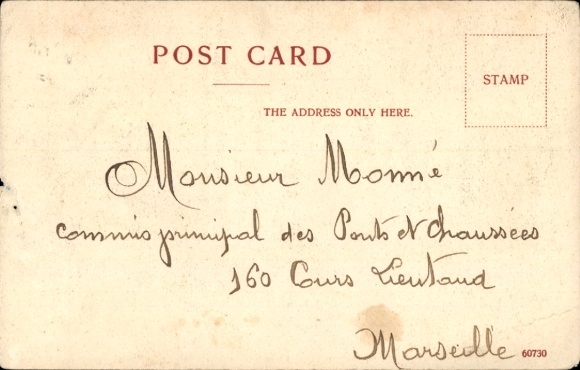 POST CARD
STAMP
THE ADDRESS ONLY HERE.
Monsieur Monné
Commis principal des Ponts et Chaussées
160 Cours Lieutaud
Marseille
60730